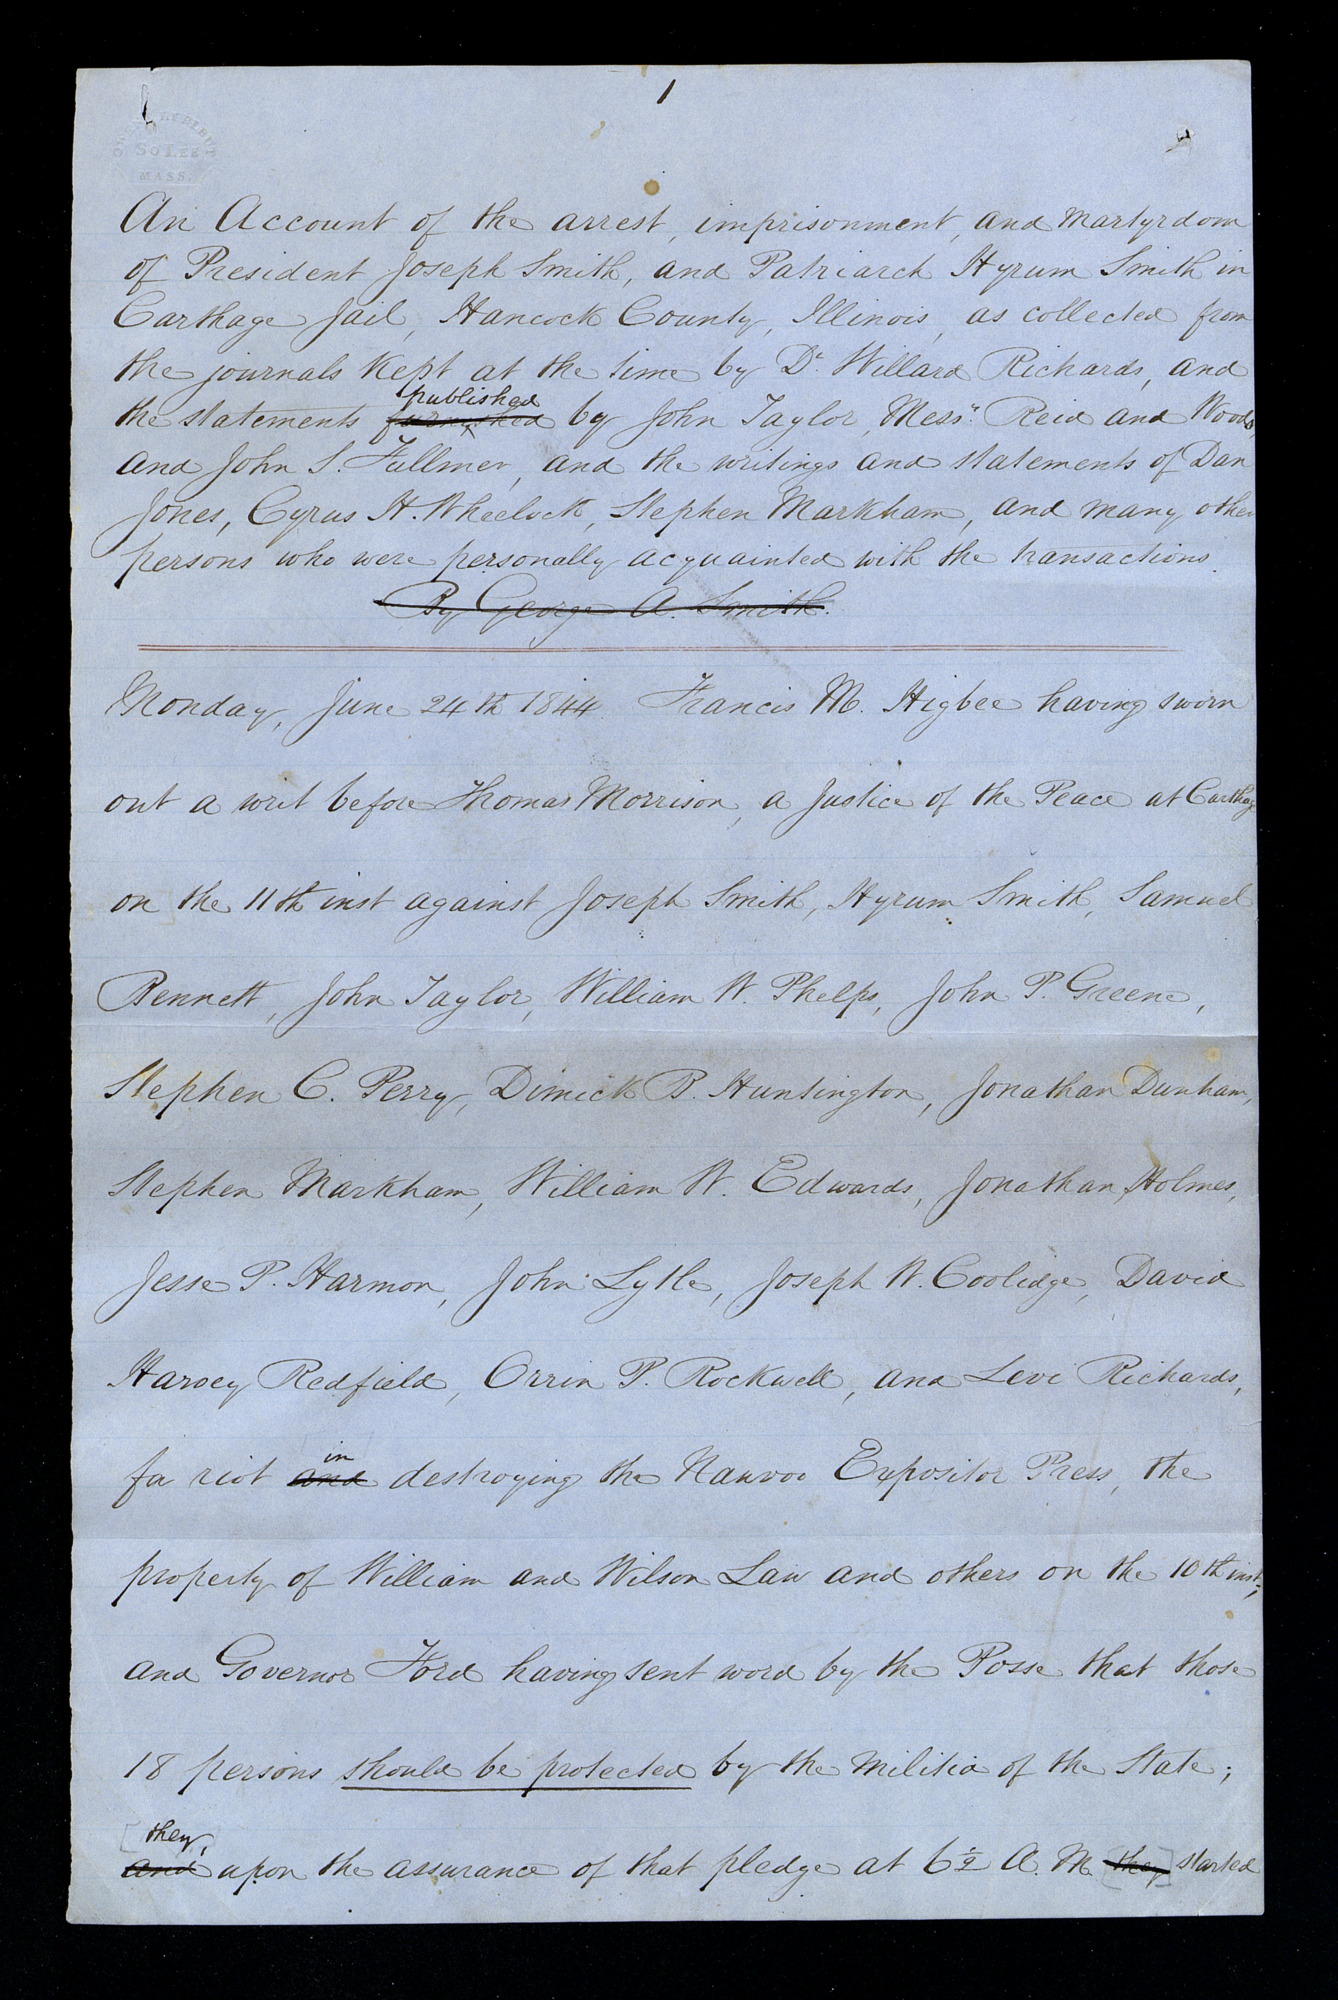 1
An Account of the arrest, imprisonment, and Martyrdom
of President Joseph Smith, and Patriarch Hyrum Smith in
Carthage Jail, Hancock County, Illinois, as collected from
the journals kept at the time by Dr. Willard Richards, and
published
the statements furnished by John Taylor, Messrs. Reid and Woods,
and John S. Fullmer, and the writings and statements of Dan
Jones, Cyrus H. Wheelock, Stephen Markham, and many other
persons who were personally acquainted with the transactions.
By George A. Smith.
Monday, June 24th 1844. Francis M. Higbee having sworn
out a writ before Thomas Morrison, a Justice of the Peace at Carthage
on the 11th inst against Joseph Smith, Hyrum Smith, Samuel
Bennett, John Taylor, William W. Phelps, John P. Greene,
Stephen C. Perry, Dimick B. Huntington, Jonathan Dunham,
Stephen Markham, William W. Edwards, Jonathan Holmes,
Jesse P. Harmon, John Lytle, Joseph W. Coolidge, David
Harvey Redfield, Orrin P. Rockwell, and Levi Richards,
in
for riot and destroying the Nauvoo Expositor Press, the
property of William and Wilson Law and others on the 10th inst;
and Governor Ford having sent word by the Posse that those
18 persons should be protected by the Militia of the State;
[they,
and upon the assurance of that pledge at 6½ A.M. [they] started